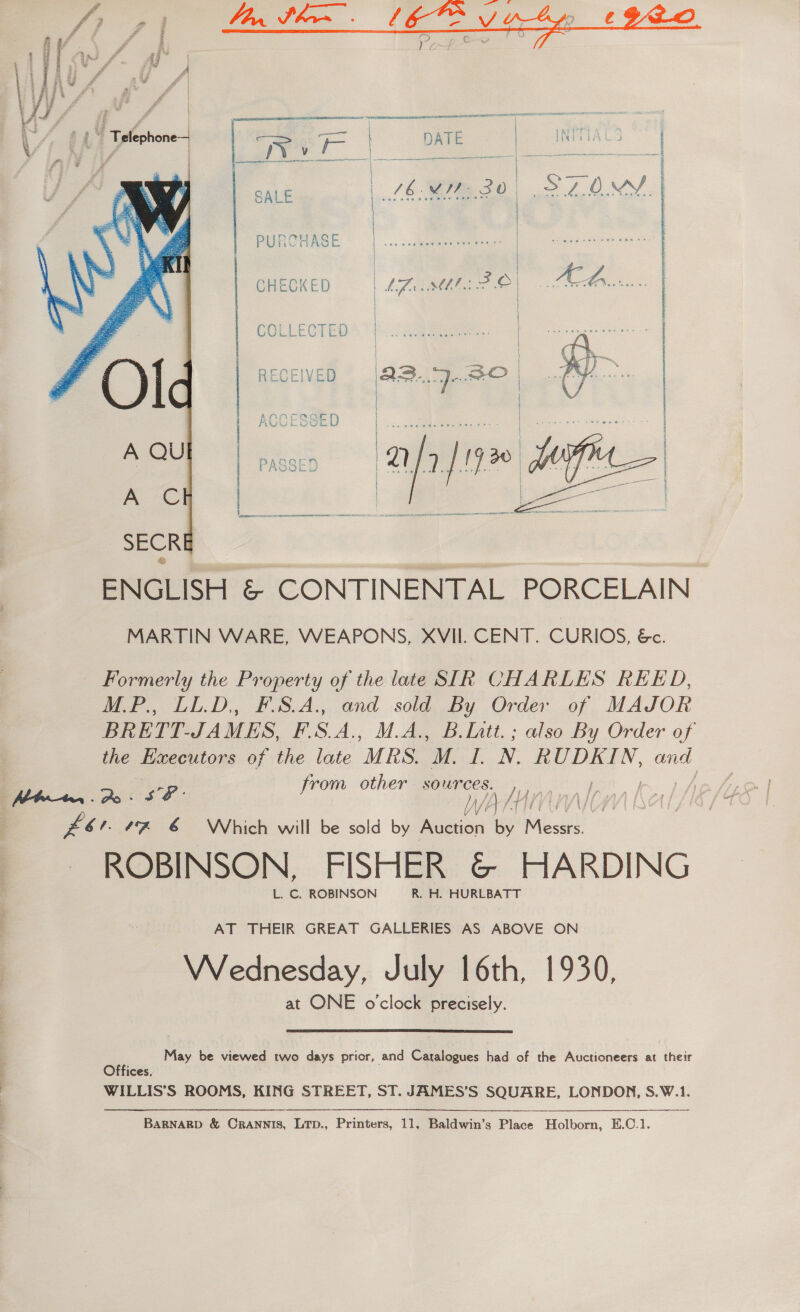 16th July 1930
Telephone—
R v F DATE INITIALS
SALE 16.VII.30 STOW.
PURCHASE
CHECKED 17.VII.30
COLLECTED
RECEIVED 23.7.30
ACCESSED
PASSED 21/7/1930
W
KIN
Old
A QU
A CH
SECRE
ENGLISH & CONTINENTAL PORCELAIN
MARTIN WARE, WEAPONS, XVII. CENT. CURIOS, &c.
Formerly the Property of the late SIR CHARLES REED,
M.P., LL.D., F.S.A., and sold By Order of MAJOR
BRETT-JAMES, F.S.A., M.A., B.Litt.; also By Order of
the Executors of the late MRS. M. I. N. RUDKIN, and
from other sources.
£61. 17 6 Which will be sold by Auction by Messrs.
ROBINSON, FISHER & HARDING
L. C. ROBINSON R. H. HURLBATT
AT THEIR GREAT GALLERIES AS ABOVE ON
Wednesday, July 16th, 1930,
at ONE o'clock precisely.
May be viewed two days prior, and Catalogues had of the Auctioneers at their
Offices,
WILLIS'S ROOMS, KING STREET, ST. JAMES'S SQUARE, LONDON, S.W.1.
BARNARD & CRANNIS, LTD., Printers, 11, Baldwin's Place Holborn, E.C.1.